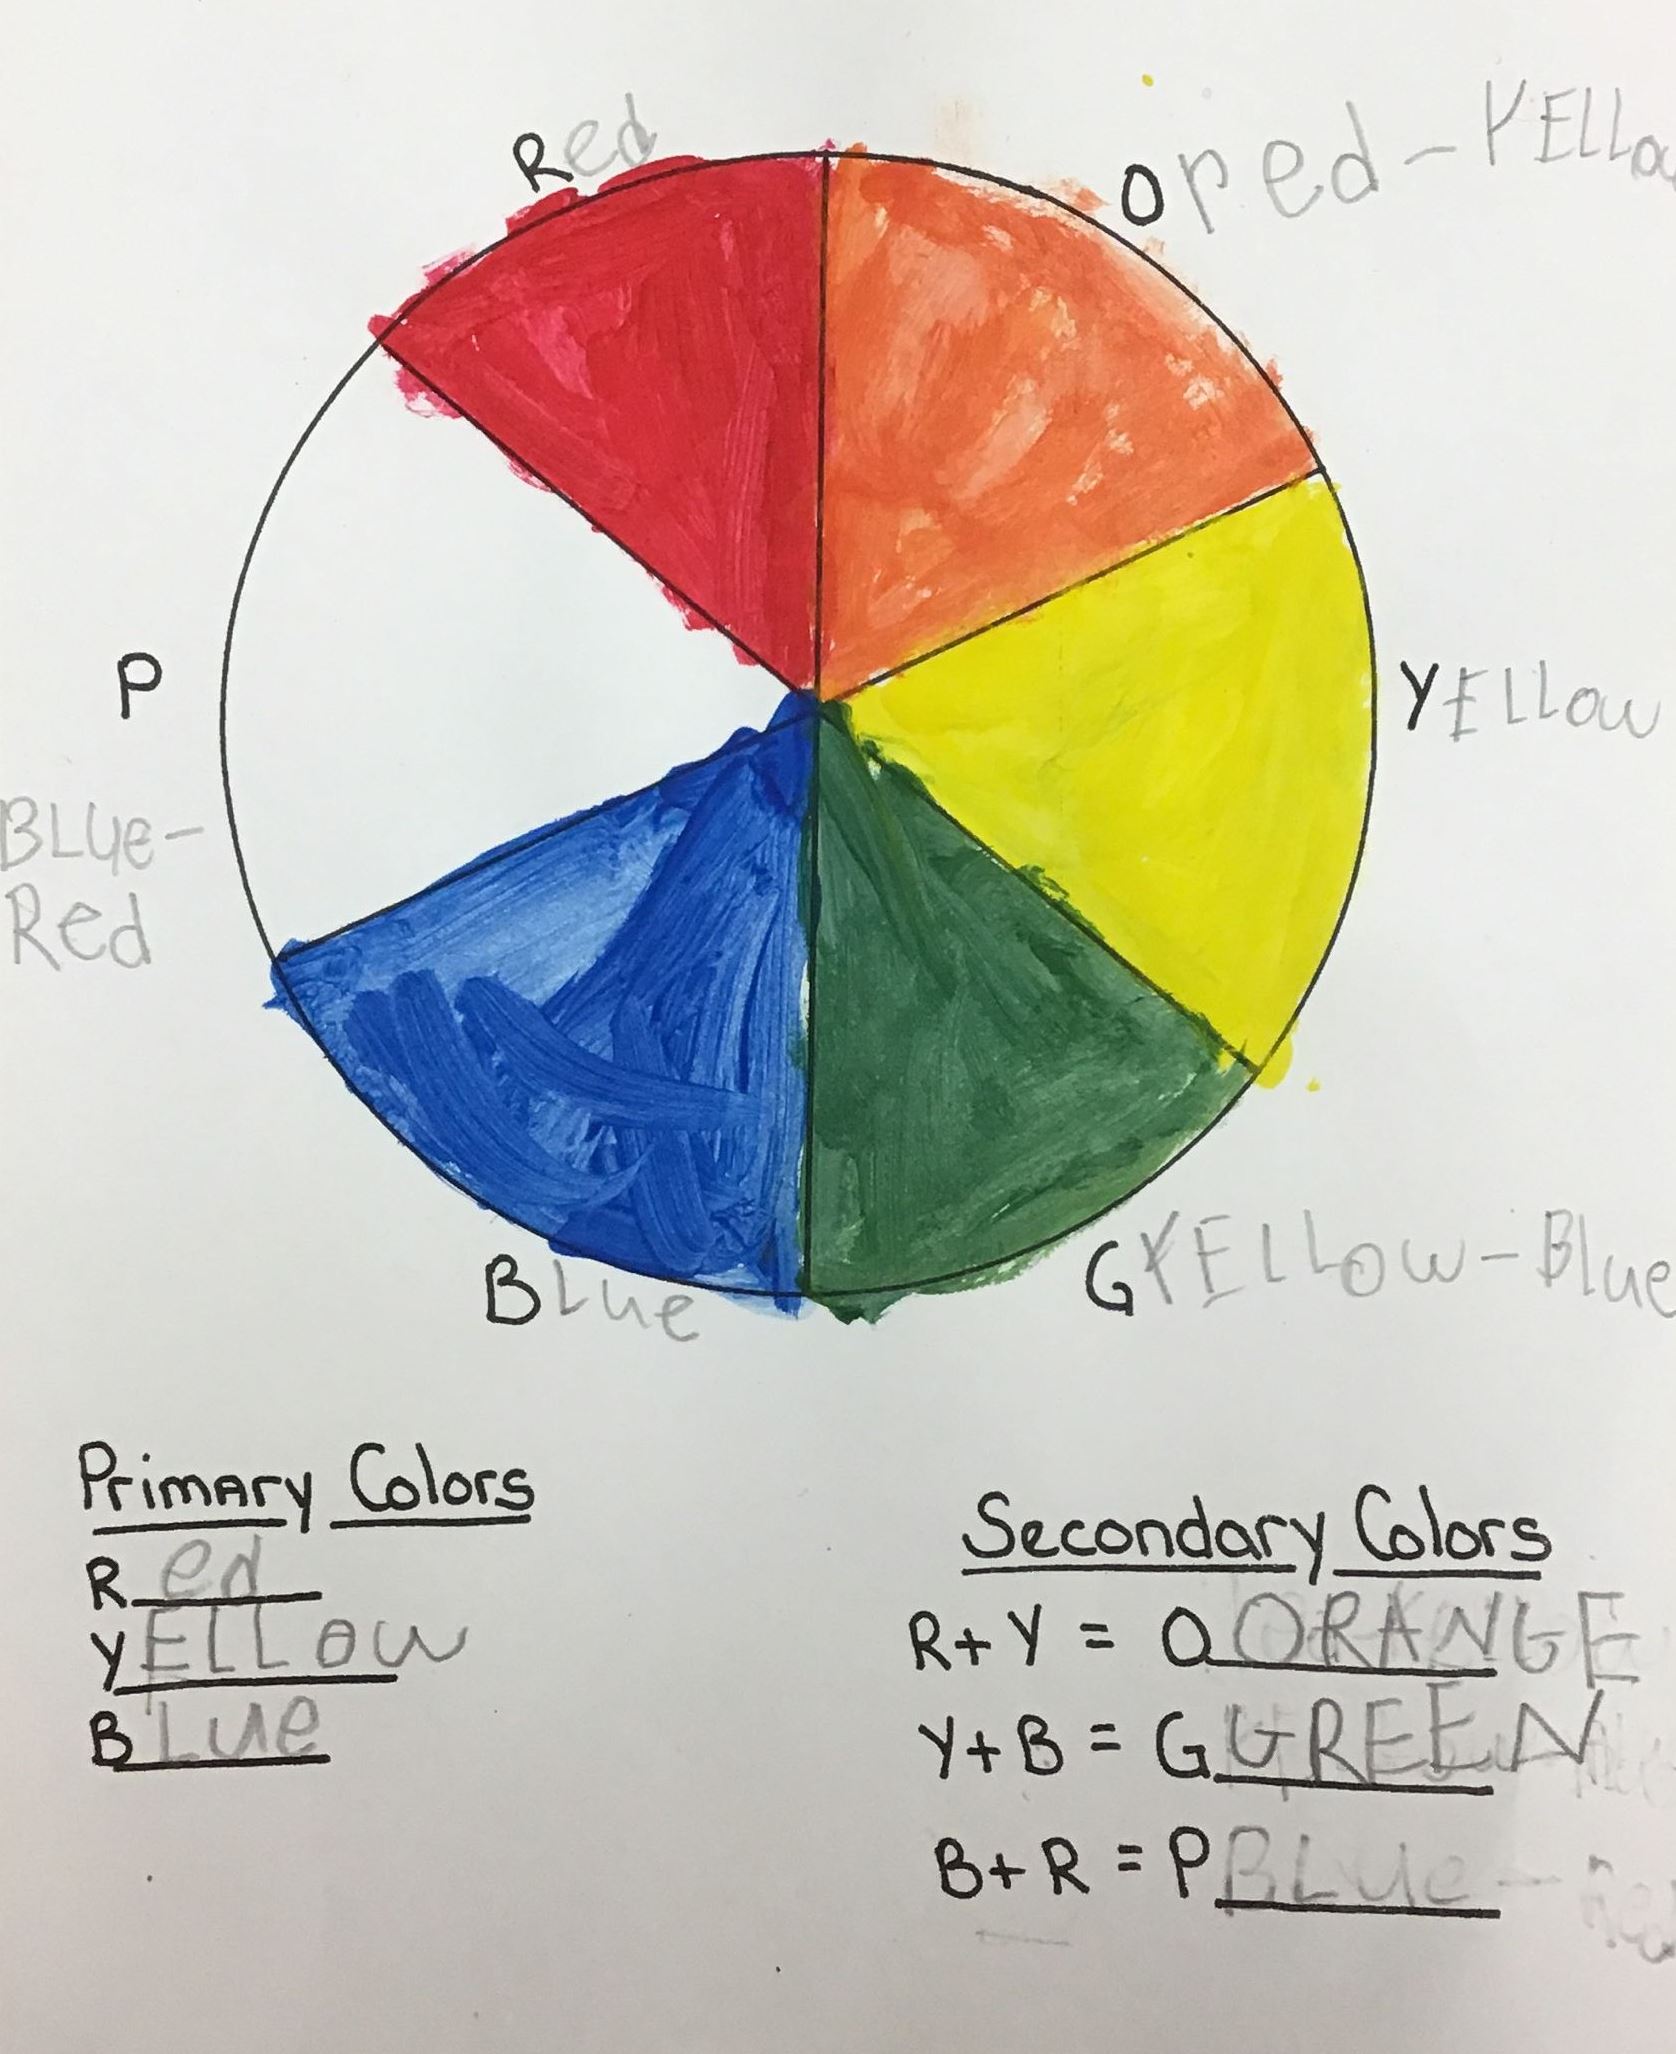 Red
Ored-YELLow
P
YELLow
BLue-
Red
BLue
GYELLow-Blue
Primary Colors
Red
YELLow
BLue
Secondary Colors
R+Y = OORANGE
Y+B = GGREEN
B+R = PBLue-Red